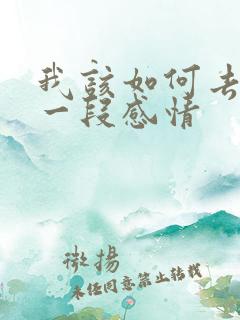 我該如何去
一段感情
微揚
未任同意禁止转载